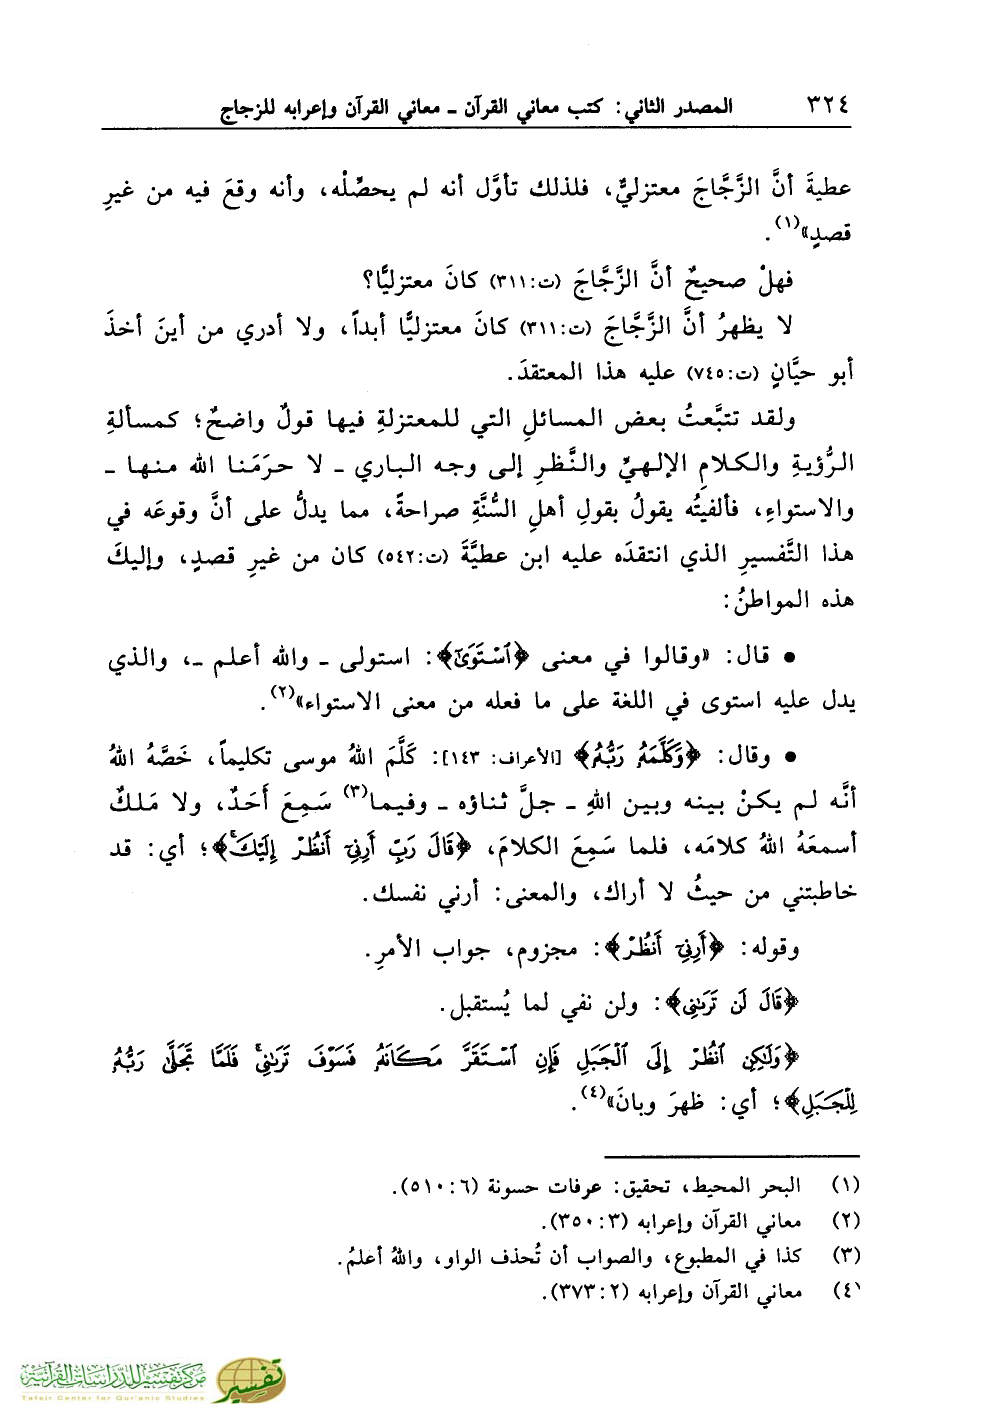 ٣٢٤ المصدر الثاني: كتب معاني القرآن ـ معاني القرآن وإعرابه للزجاج
عطيةَ أنَّ الزَّجَّاجَ معتزليٌّ، فلذلك تأوَّل أنه لم يحصِّلْه، وأنه وقعَ فيه من غيرِ
قصدٍ»(١).
فهلْ صحيحٌ أنَّ الزَّجَّاجَ (ت:٣١١) كانَ معتزليًّا؟
لا يظهرُ أنَّ الزَّجَّاجَ (ت:٣١١) كانَ معتزليًّا أبداً، ولا أدري من أينَ أخذَ
أبو حيَّانٍ (ت:٧٤٥) عليه هذا المعتقدَ.
ولقد تتبَّعتُ بعض المسائلِ التي للمعتزلةِ فيها قولٌ واضحٌ؛ كمسألةِ
الرُّؤيةِ والكلامِ الإلهيِّ والنَّظرِ إلى وجه الباري ـ لا حرَمَنا الله منها ـ
والاستواءِ، فألفيتُه يقولُ بقولِ أهلِ السُّنَّةِ صراحةً، مما يدلُّ على أنَّ وقوعَه في
هذا التَّفسيرِ الذي انتقدَه عليه ابن عطيَّةَ (ت:٥٤٢) كان من غيرِ قصدٍ، وإليكَ
هذه المواطنُ:
● قال: «وقالوا في معنى ﴿ٱسْتَوَىٰٓ﴾: استولى ـ والله أعلم ـ، والذي
يدل عليه استوى في اللغة على ما فعله من معنى الاستواء»(٢).
● وقال: ﴿وَكَلَّمَهُۥ رَبُّهُۥ﴾ [الأعراف: ١٤٣]: كَلَّمَ اللهُ موسى تكليماً، خَصَّهُ اللهُ
أنَّه لم يكنْ بينه وبين اللهِ ـ جلَّ ثناؤه ـ وفيما(٣) سَمِعَ أَحَدٌ، ولا مَلكٌ
أسمعَهُ اللهُ كلامَه، فلما سَمِعَ الكلامَ، ﴿قَالَ رَبِّ أَرِنِىٓ أَنظُرْ إِلَيْكَۚ﴾؛ أي: قد
خاطبتني من حيثُ لا أراك، والمعنى: أرني نفسك.
وقوله: ﴿أَرِنِىٓ أَنظُرْ﴾: مجزوم، جواب الأمرِ.
﴿قَالَ لَن تَرَىٰنِى﴾: ولن نفي لما يُستقبل.
﴿وَلَٰكِنِ ٱنظُرْ إِلَى ٱلْجَبَلِ فَإِنِ ٱسْتَقَرَّ مَكَانَهُۥ فَسَوْفَ تَرَىٰنِىۚ فَلَمَّا تَجَلَّىٰ رَبُّهُۥ
لِلْجَبَلِ﴾؛ أي: ظهرَ وبانَ»(٤).
(١) البحر المحيط، تحقيق: عرفات حسونة (٦:٥١٠).
(٢) معاني القرآن وإعرابه (٣:٣٥٠).
(٣) كذا في المطبوع، والصواب أن تُحذف الواو، واللهُ أعلمُ.
(٤) معاني القرآن وإعرابه (٢:٣٧٣).
مركز تفسير للدراسات القرآنية
Tafsir Center for Qur'anic Studies
تفسير